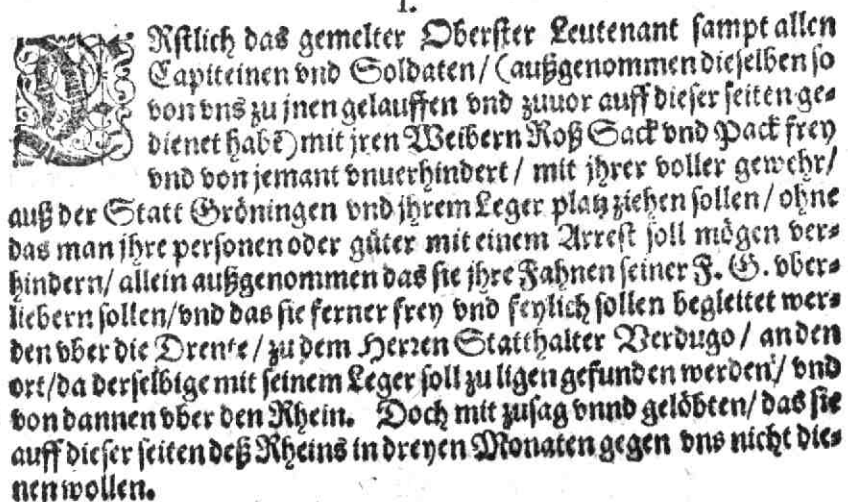 1.
ERstlich das gemelter Oberster Leutenant sampt allen
Capiteinen vnd Soldaten/ (außgenommen dieselben so
von vns zu jnen gelauffen vnd zuuor auff dieser seiten ge-
dienet habē) mit jren Weibern Roß Sack vnd Pack frey
vnd von jemant vnuerhindert / mit jhrer voller gewehr/
auß der Statt Gröningen vnd jhrem Leger platz ziehen sollen / ohne
das man jhre personen oder güter mit einem Arrest soll mögen ver-
hindern/ allein außgenommen das sie jhre Fahnen seiner F. G. vber-
liebern sollen/vnd das sie ferner frey vnd feylich sollen begleitet wer-
den vber die Drente / zu dem Herren Statthalter Verdugo / an den
ort/da derselbige mit seinem Leger soll zu ligen gefunden werden/ vnd
von dannen vber den Rhein. Doch mit zusag vnnd gelöbten/ das sie
auff dieser seiten deß Rheins in dreyen Monaten gegen vns nicht die-
nen wollen.